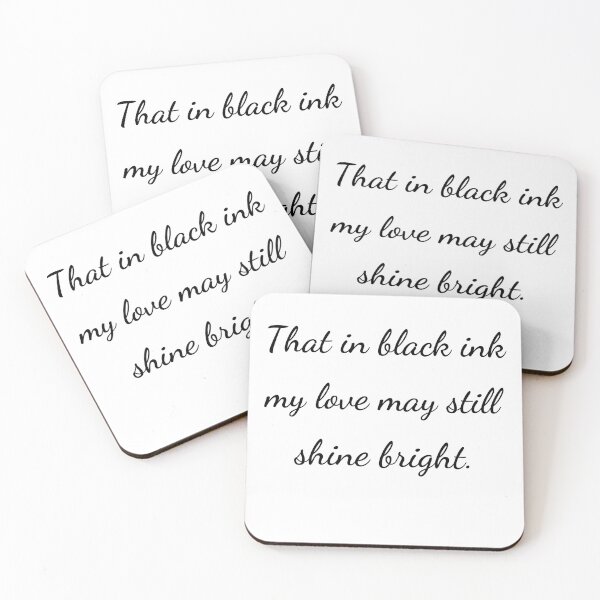 That in black ink
my love may
That in black ink
my love may still
shine bright.
That in black ink
my love may still
shine
That in black ink
my love may still
shine bright.